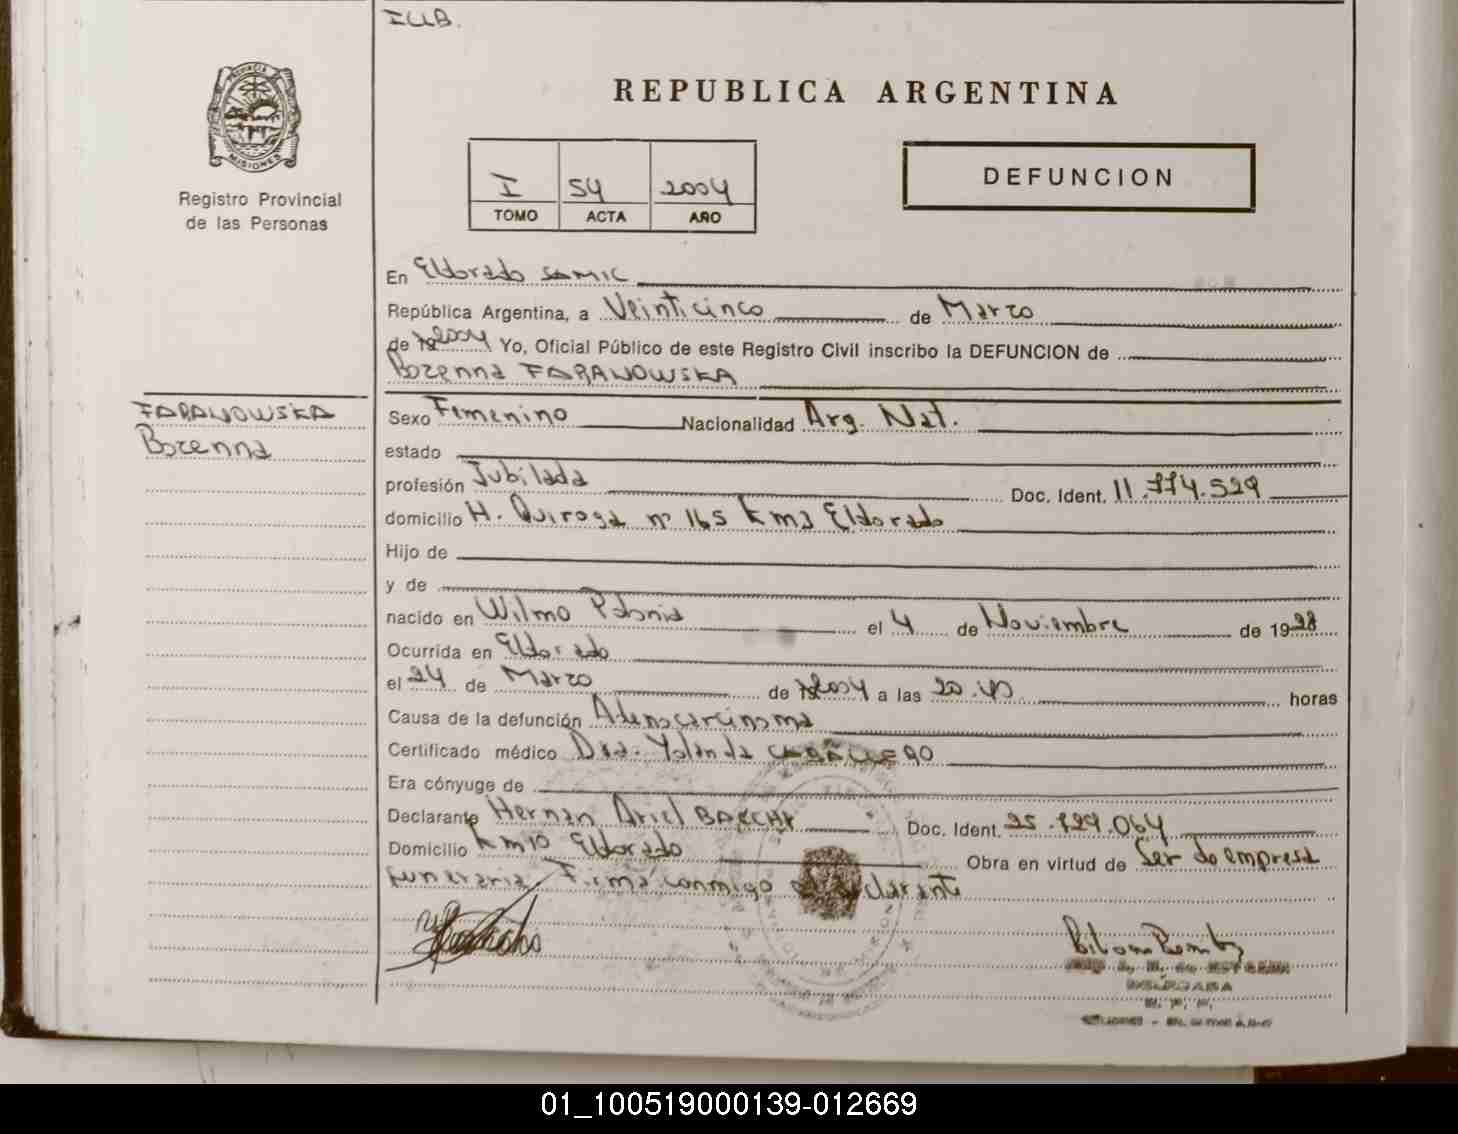 IUB.
PROVINCIA DE
MISIONES
Registro Provincial
de las Personas
REPUBLICA ARGENTINA
I 54 2004
TOMO ACTA AÑO
DEFUNCION
En Eldorado SAMIC
República Argentina, a Veinticinco de Marzo
de 2004 Yo, Oficial Público de este Registro Civil inscribo la DEFUNCION de
Bozenna FARANOWSKA
FARANOWSKA
Bozenna
Sexo Femenino Nacionalidad Arg. Nat.
estado
profesión Jubilada Doc. Ident. 11.774.529
domicilio H. Quiroga nº 165 Km9 Eldorado
Hijo de
y de
nacido en Wilno Polonia el 4 de Noviembre de 1928
Ocurrida en Eldorado
el 24 de Marzo de 2004 a las 20.40 horas
Causa de la defunción Adenocarcinoma
Certificado médico Dra. Yolanda CABALLERO
Era cónyuge de
Declarante Hernan Ariel Doc. Ident. 25.729.064
Domicilio Km10 Eldorado Obra en virtud de Ser de empresa
funeraria Firma conmigo declarante
DELEGADA
01_100519000139-012669